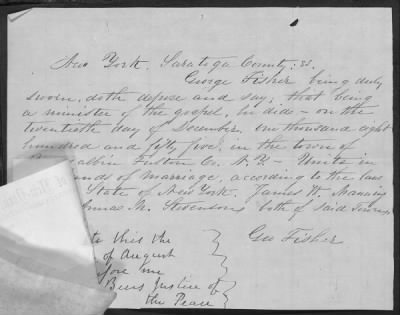 New York. Saratoga County: ss.
George Fisher being duly
sworn, doth depose and say, that being
a minister of the gospel, he did - on the
twentieth day of December, one thousand eight
hundred and fifty five, in the town of
albin Fulton Co. N.Y. - Unite in
nds of marriage, according to the laws
State of New York. James W. Manning
Annas M. Stevenson both of said Town.
Geo Fisher
to this the
of August
fore me
Justice of
the Peace